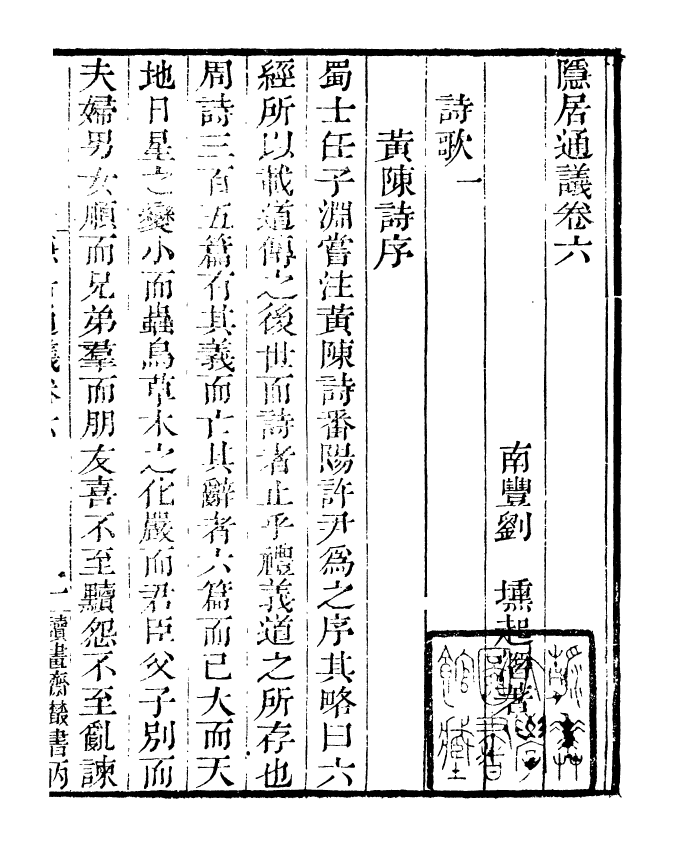 隱居通議卷六
南豐劉　壎起潛著
詩歌一
黃陳詩序
蜀士任子淵嘗注黃陳詩番陽許尹爲之序其略曰六
經所以載道傳之後世而詩者止乎禮義道之所存也
周詩三百五篇有其義而亡其辭者六篇而已大而天
地日星之變小而蟲鳥草木之化嚴而君臣父子別而
夫婦男女順而兄弟羣而朋友喜不至黷怨不至亂諫
隱居通議卷六　一　讀畫齋叢書丙